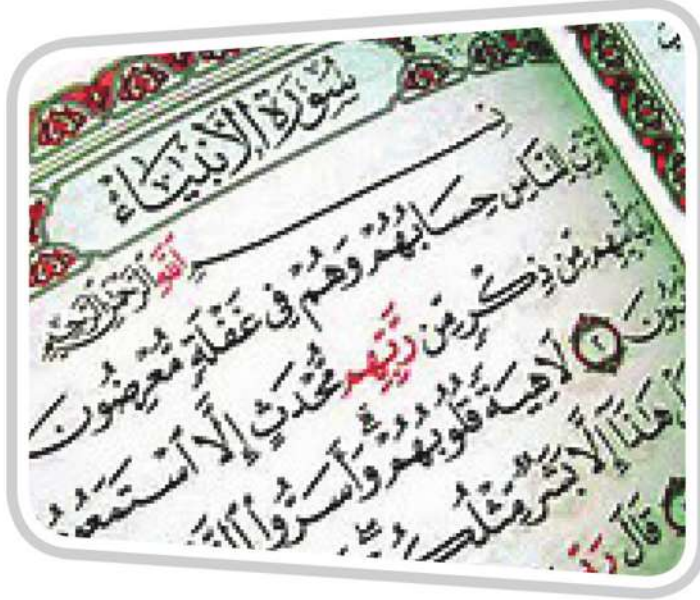 سُورَةُ الْأَنْبِيَاءِ
بِسْمِ اللَّهِ الرَّحْمَٰنِ الرَّحِيمِ
لِلنَّاسِ حِسَابُهُمْ وَهُمْ فِي غَفْلَةٍ مُّعْرِضُونَ
مِّن ذِكْرٍ مِّن رَّبِّهِم مُّحْدَثٍ إِلَّا اسْتَمَعُو
٢ لَاهِيَةً قُلُوبُهُمْ وَأَسَرُّوا
هَٰذَا إِلَّا بَشَرٌ مِّثْلُكُمْ
قَالَ